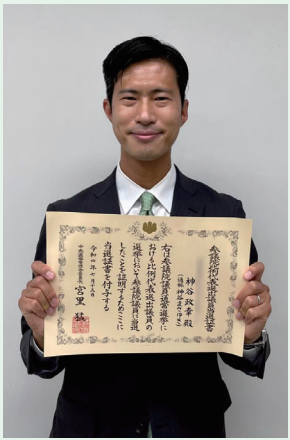 参議院比例代表選出議員当選証書
神谷政幸殿
(通称 神谷まさゆき)
右は参議院議員通常選挙に
おける比例代表選出議員の
選挙において参議院議員に当選
したことを証明するためここに
当選証書を付与する
令和四年七月十五日
中央選挙管理会委員長
宮里猛